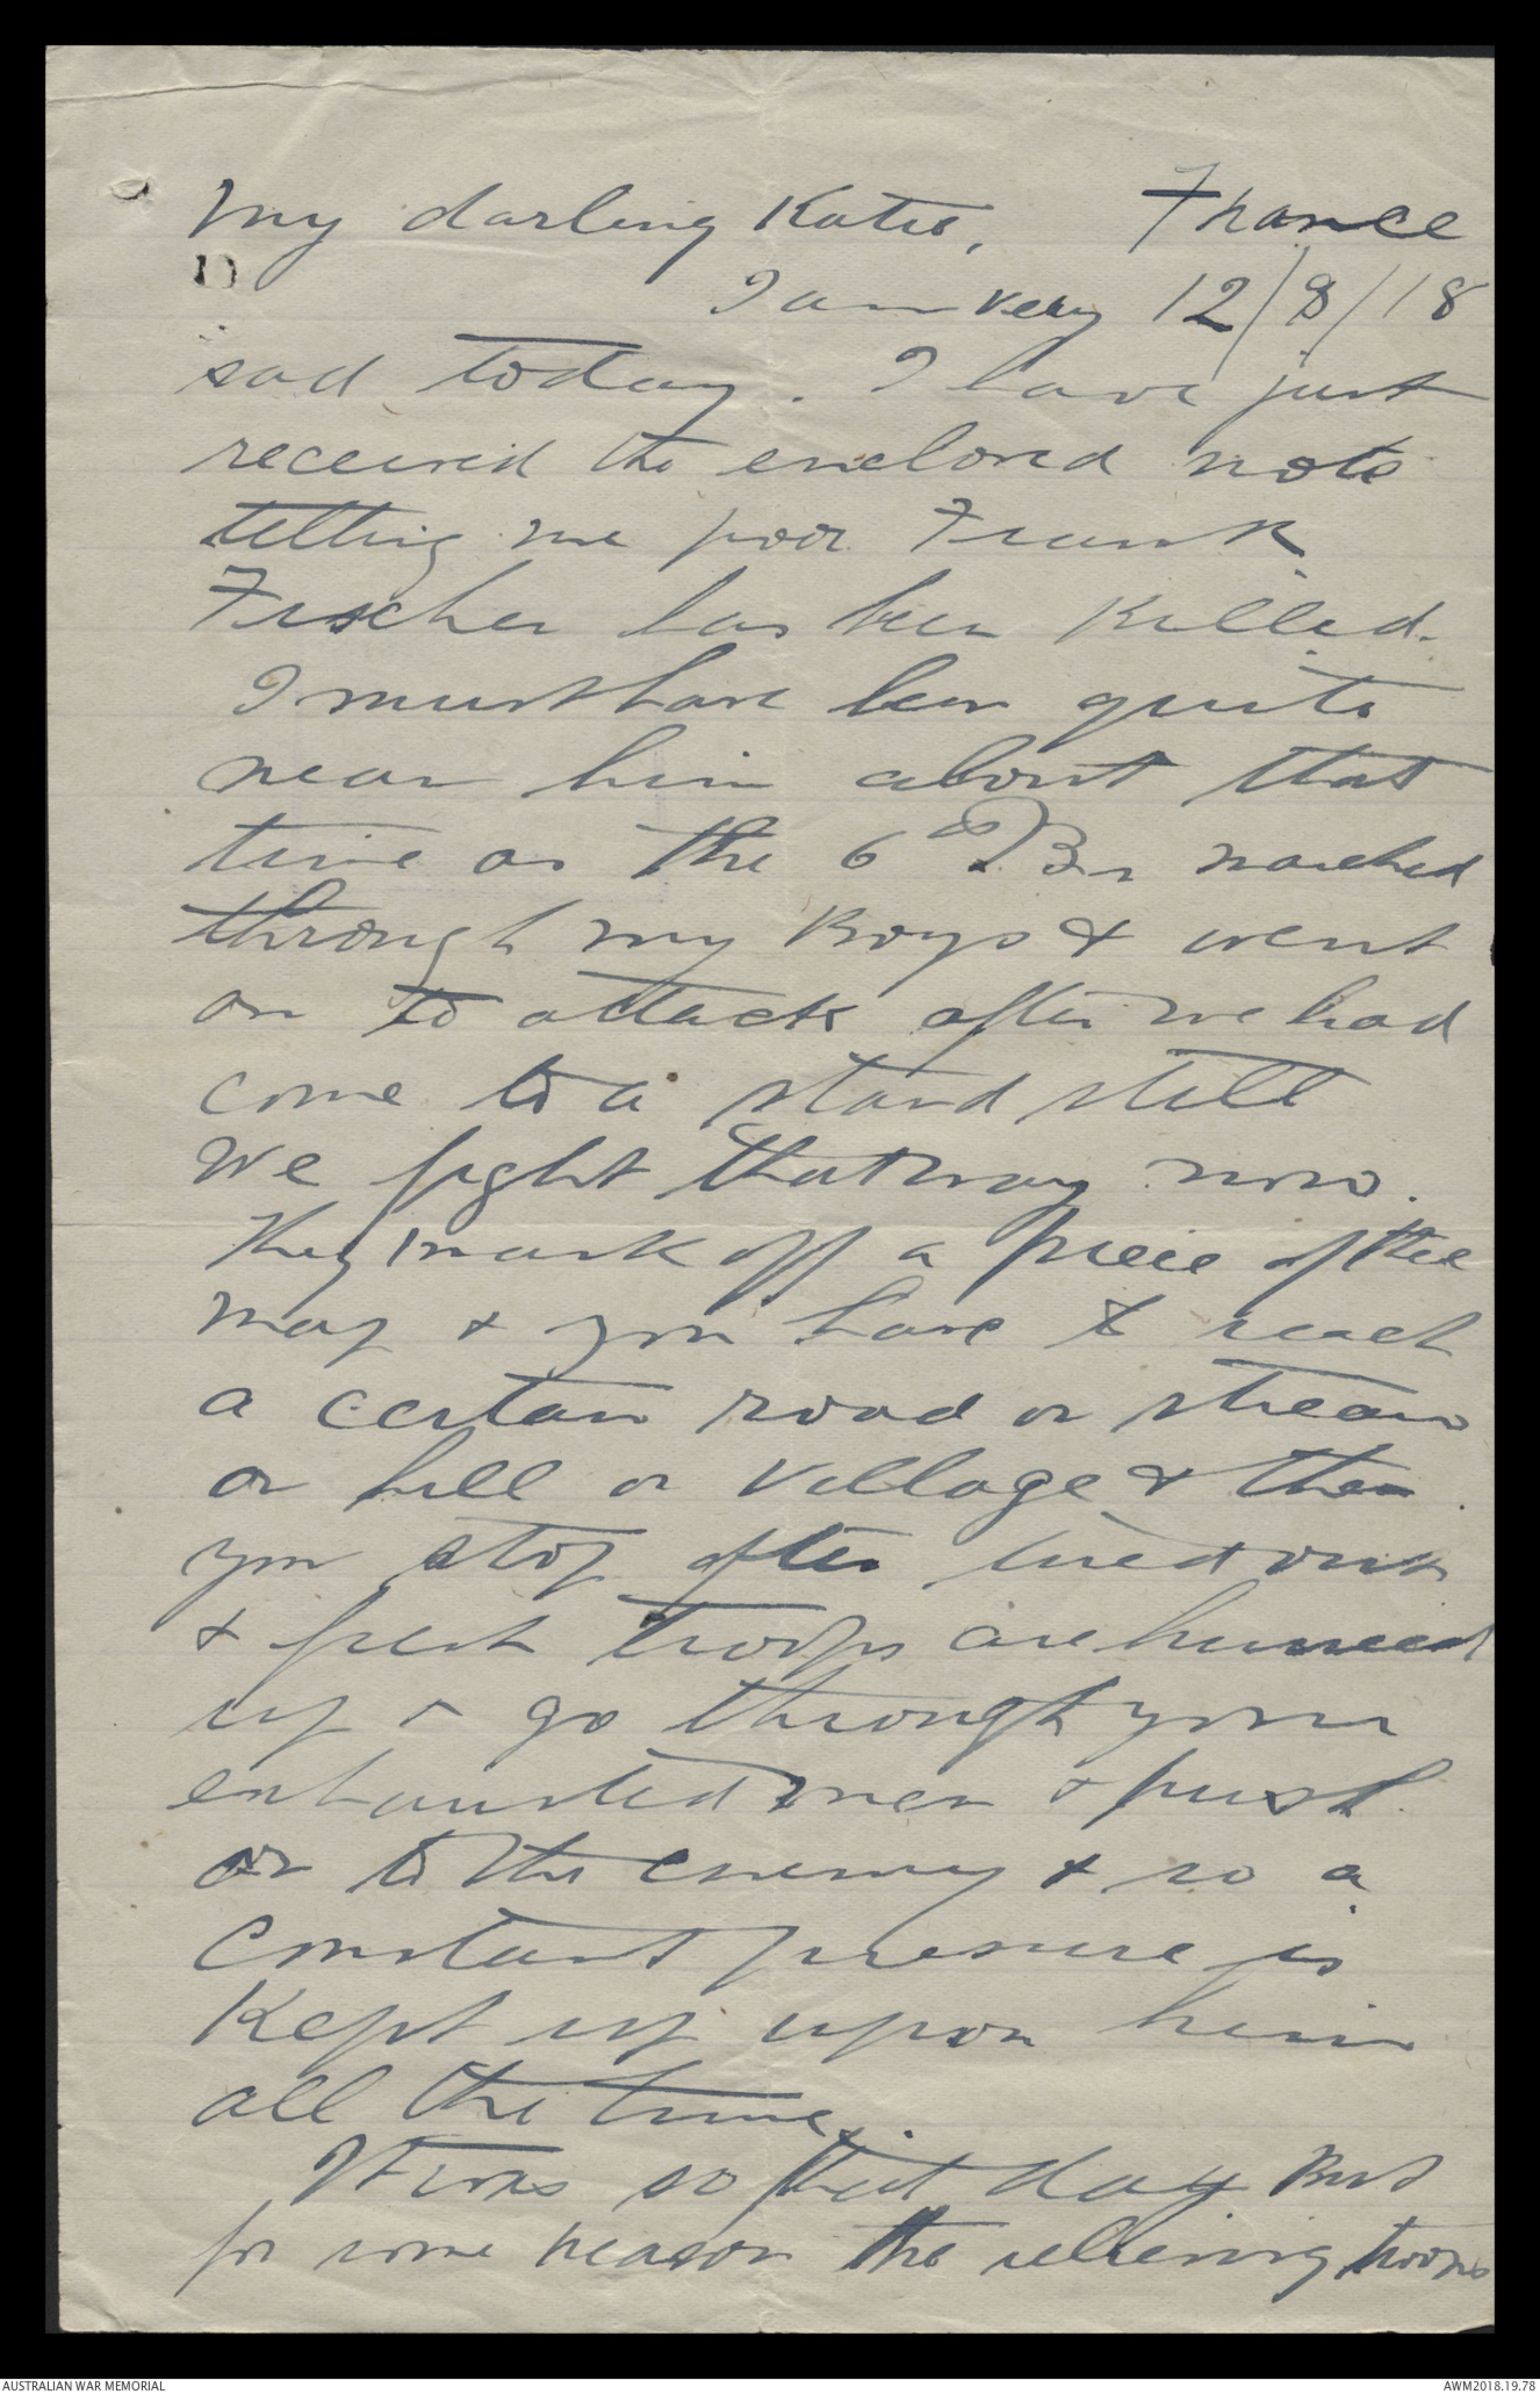 My darling Katie, France
1)
I am very 12/8/18
sad today. I have just
received the enclosed note
telling me poor Frank
Fischer has been killed.
I must have been quite
near him about that
time as the 6th Bn marched
through my Boys & went
on to attack after we had
come to a stand still
We fight that way now.
They mark off a piece of the
map & you have to reach
a certain road or stream
or hill or village & then
you stop often tired out
& fresh troops are hurried
up & go through your
exhausted men & push
on to the enemy & so a
constant pressure is
kept up upon him
all the time.
It was so that day But
for some reason the relieving troops
AUSTRALIAN WAR MEMORIAL AWM2018.19.78